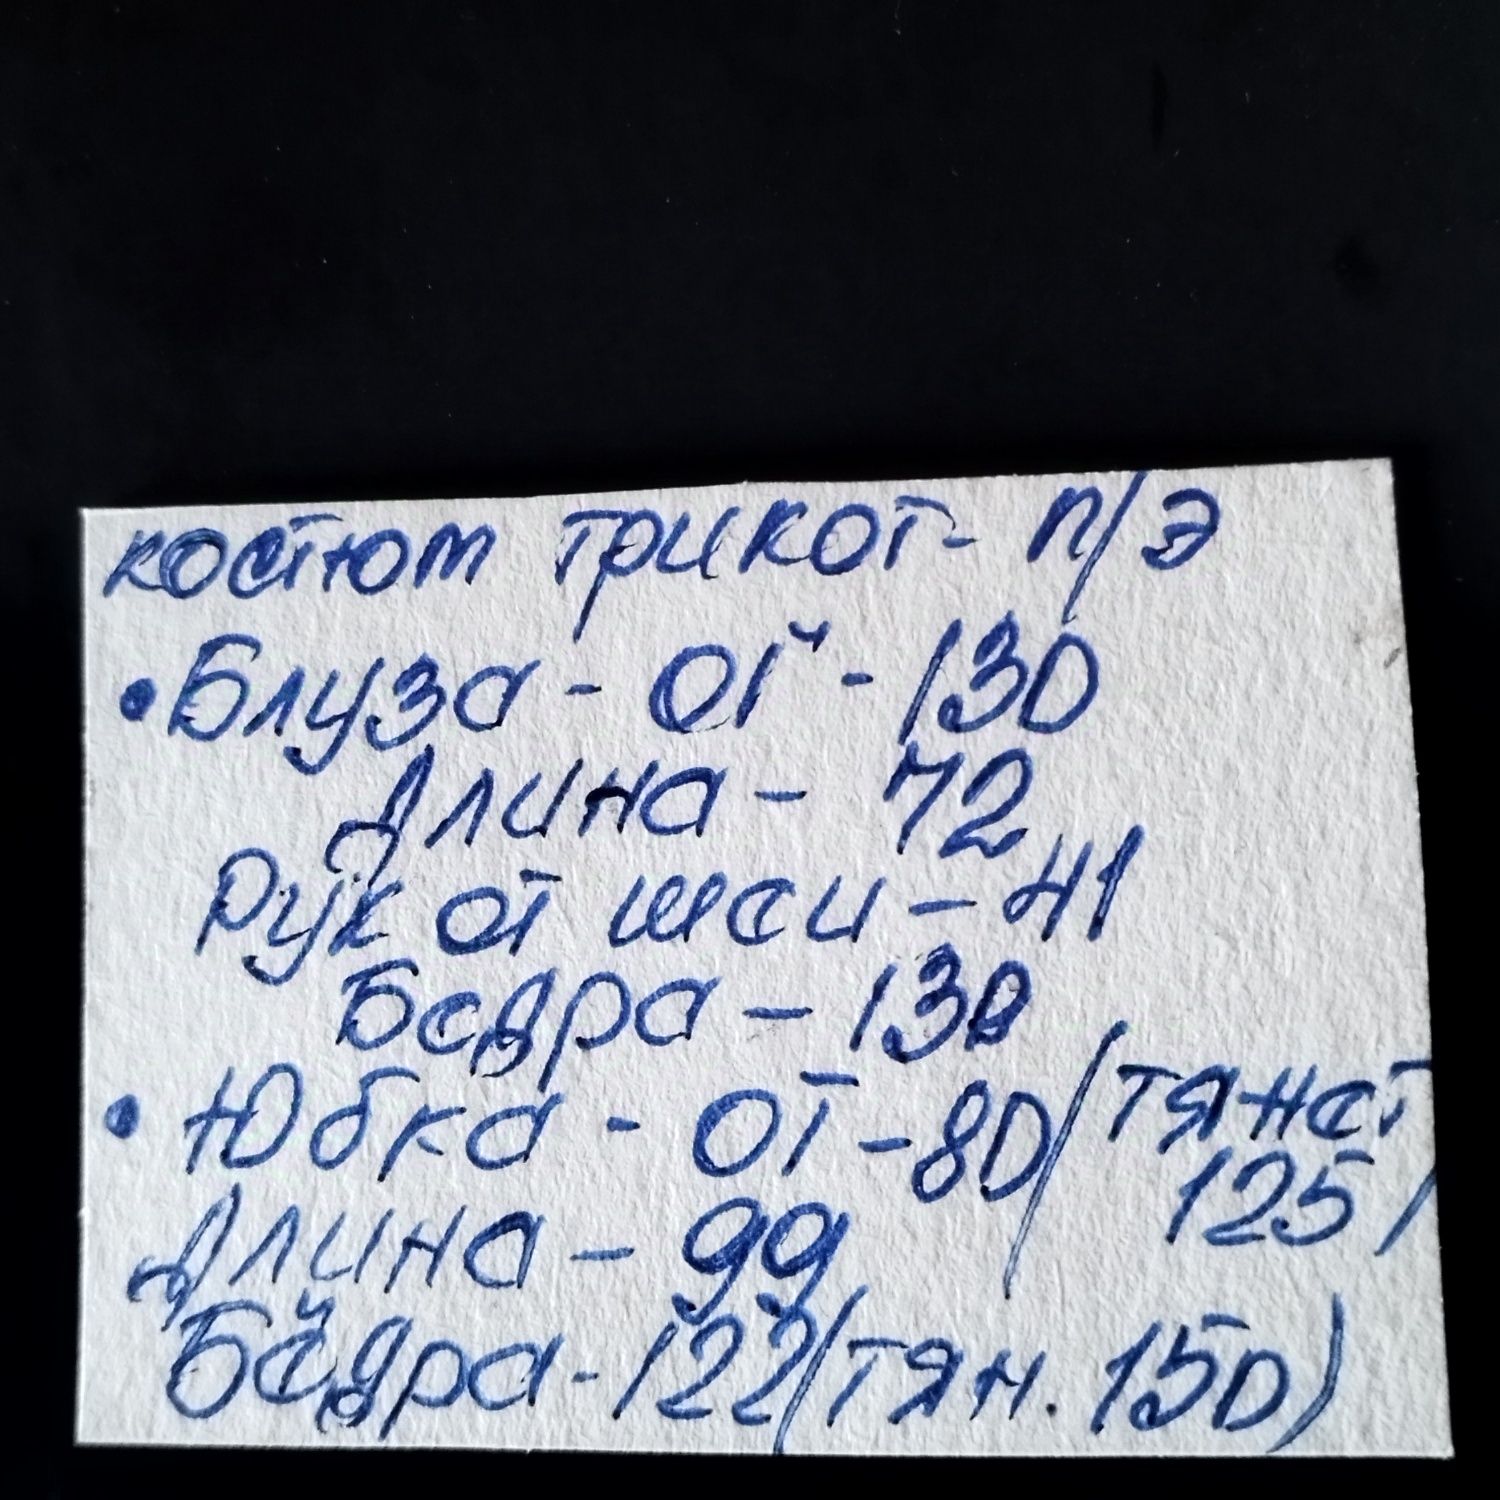 костюм трикот- п/э
• Блуза - ОТ - 130
Длина - 72
Рук от шеи - 41
Бедра - 130
• Юбка - ОТ - 80 (тянет
125)
Длина - 99
Бёдра - 122 (тян. 150)